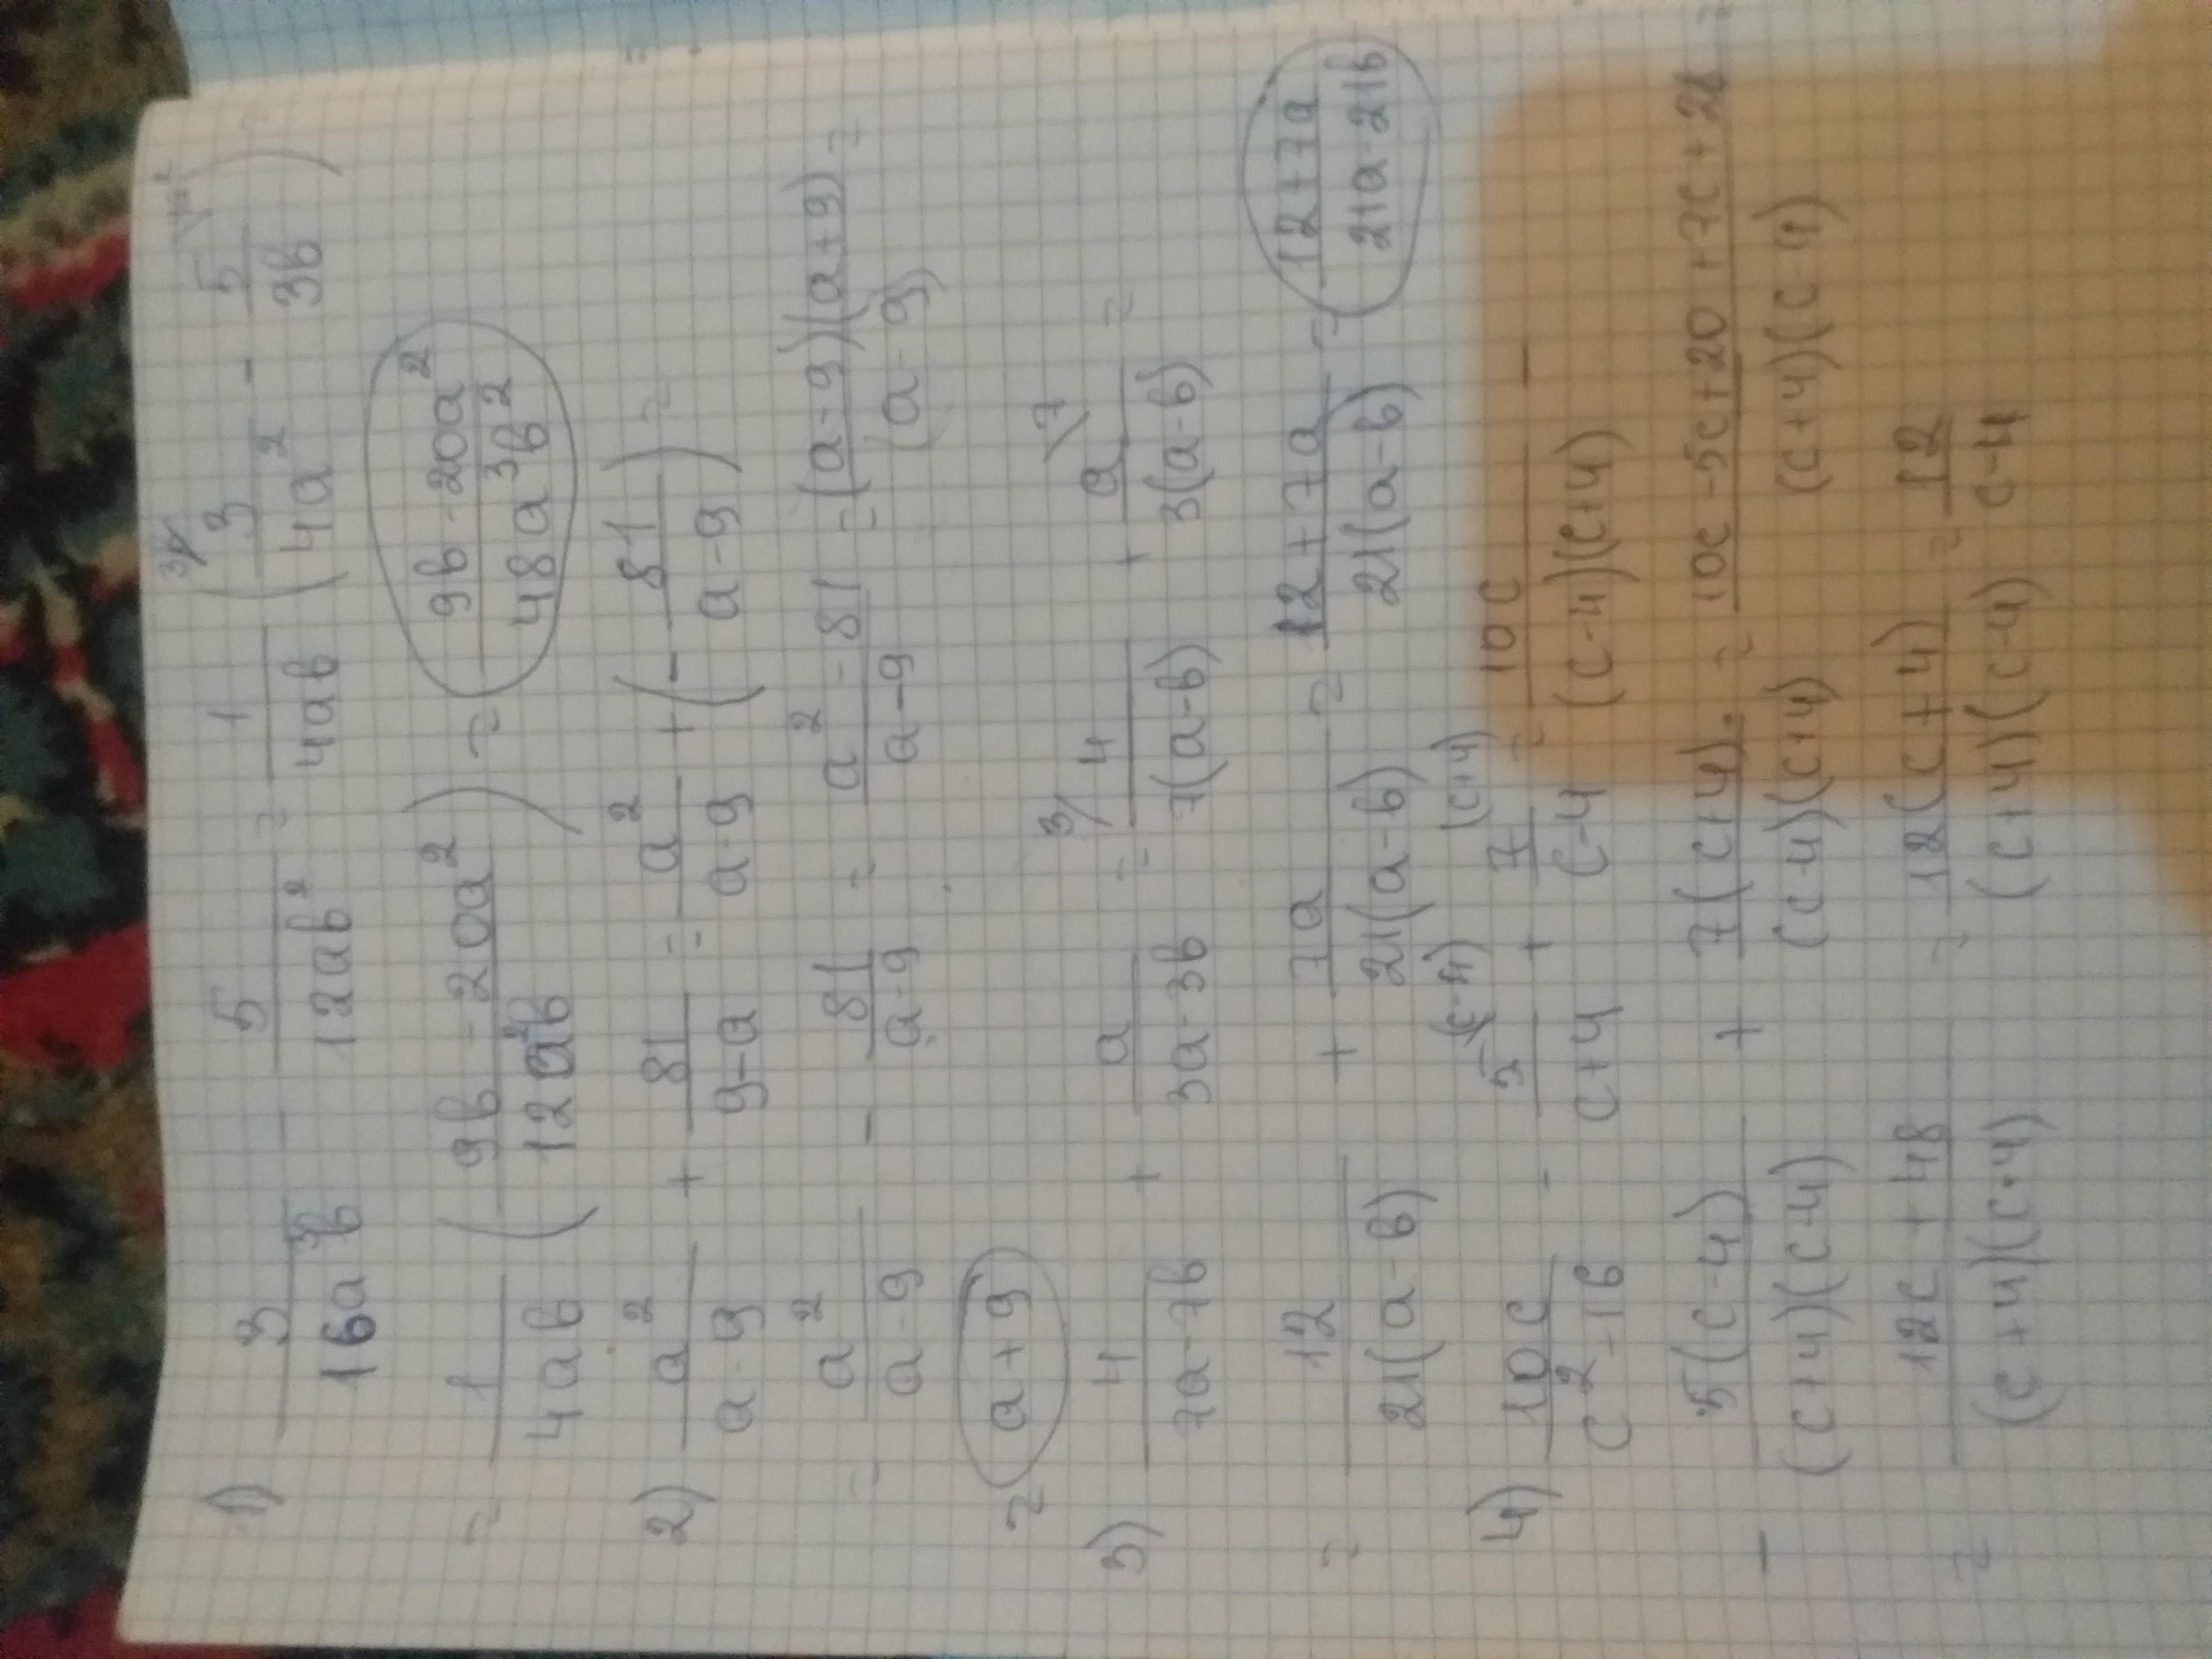 1) 3/(16a³b) - 5/(12ab²) = 1/(4ab) (³ᵇ/ 3/(4a²) - 5/(3b) \⁴ᵃ²) =
= 1/(4ab) ((9b - 20a²)/(12a²b)) = (9b - 20a²)/(48a³b²)
2) a²/(a-9) + 81/(9-a) = a²/(a-9) + (- 81/(a-9)) =
= a²/(a-9) - 81/(a-9) = (a²-81)/(a-9) = (a-9)(a+9)/(a-9) =
= a+9
3) 4/(7a-7b) + a/(3a-3b) = ³/ 4/(7(a-b)) + a/(3(a-b)) \⁷ =
= 12/(21(a-b)) + 7a/(21(a-b)) = (12+7a)/(21(a-b)) = (12+7a)/(21a-21b)
4) 10c/(c²-16) - 5/(c+4) \(c-4) + 7/(c-4) \(c+4) = 10c/((c-4)(c+4)) -
- 5(c-4)/((c+4)(c-4)) + 7(c+4)/((c-4)(c+4)) = (10c-5c+20+7c+28)/((c+4)(c-4)) =
= (12c+48)/((c+4)(c-4)) = 12(c+4)/((c+4)(c-4)) = 12/(c-4)